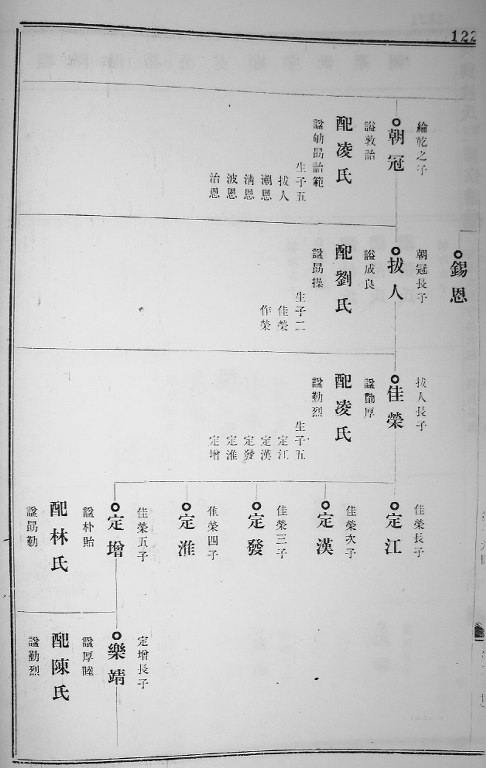 122
錫恩
綸乾之子
朝冠
諡敦詒
配凌氏
生子五
拔人
潮恩
清恩
波恩
治恩
朝冠長子
拔人
諡成良
配劉氏
諡勗操
生子二
佳榮
作榮
拔人長子
佳榮
配凌氏
諡勤烈
生子五
定江
定漢
定發
定淮
定增
佳榮長子
定江
佳榮次子
定漢
佳榮三子
定發
佳榮四子
定淮
佳榮五子
定增
諡朴貽
配林氏
諡勗勤
定增長子
樂靖
諡厚睦
配陳氏
諡勤烈